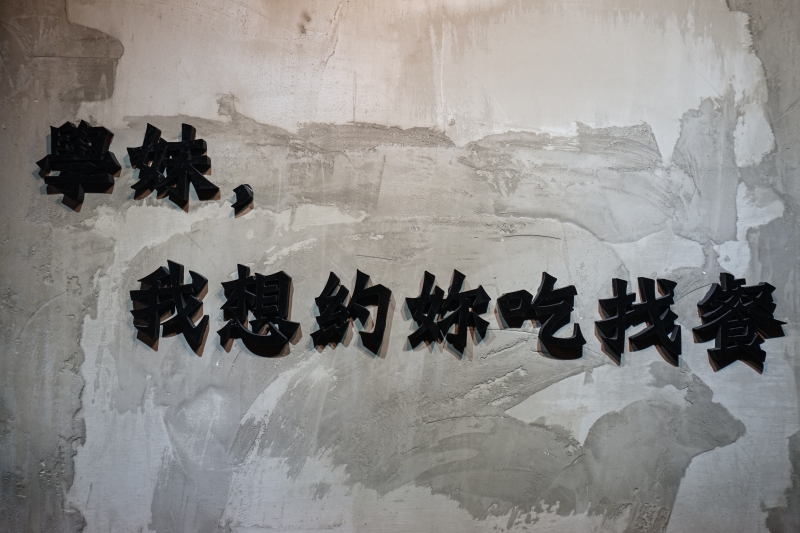 學妹,
我想約妳吃找餐